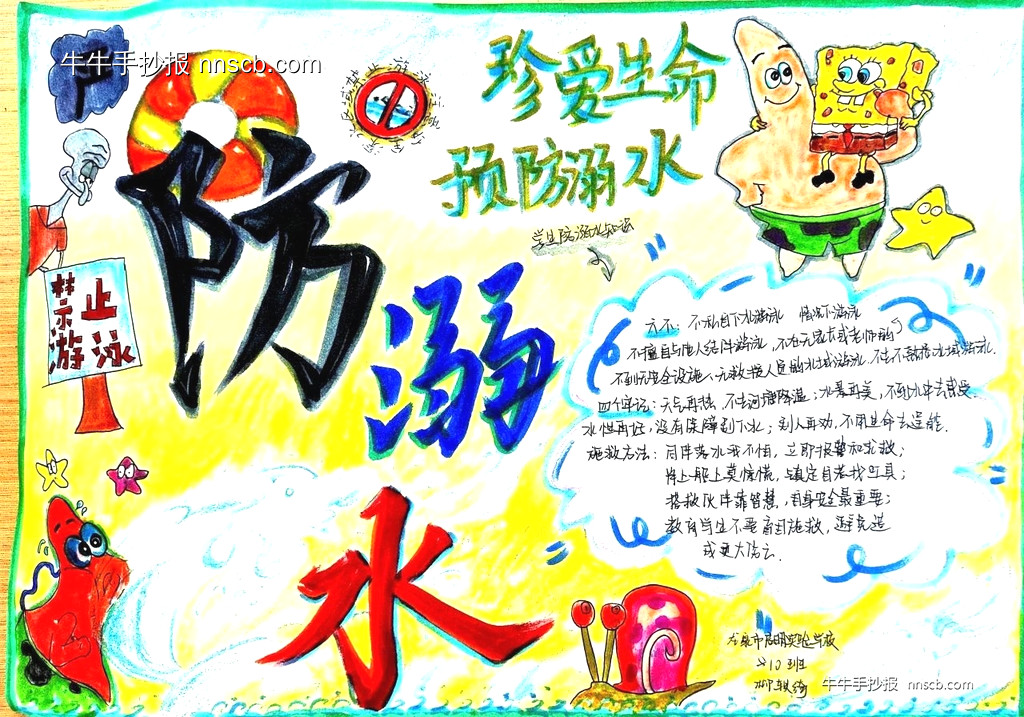 牛牛手抄报 nnscb.com
珍爱生命
预防溺水
防
溺
水
禁止
游泳
学生防溺水知识
六不：不私自下水游泳
不擅自与他人结伴游泳，不在无家长或老师的
不到无安全设施、无救援人员的水域游泳，不去不熟悉水域游泳.
四个牢记：天气再热，不去河塘降温；水景再美，不到水中去感受
水性再好，没有保障别下水；别人再劝，不用生命去逞能.
施救方法：同伴落水我不怕，立即报警和求救；
岸上船上莫惊慌，镇定自若找工具；
搭救伙伴靠智慧，自身安全最重要；
教育学生不要盲目施救，避免造
成更大伤亡.
实验学校
10班
牛牛手抄报 nnscb.com